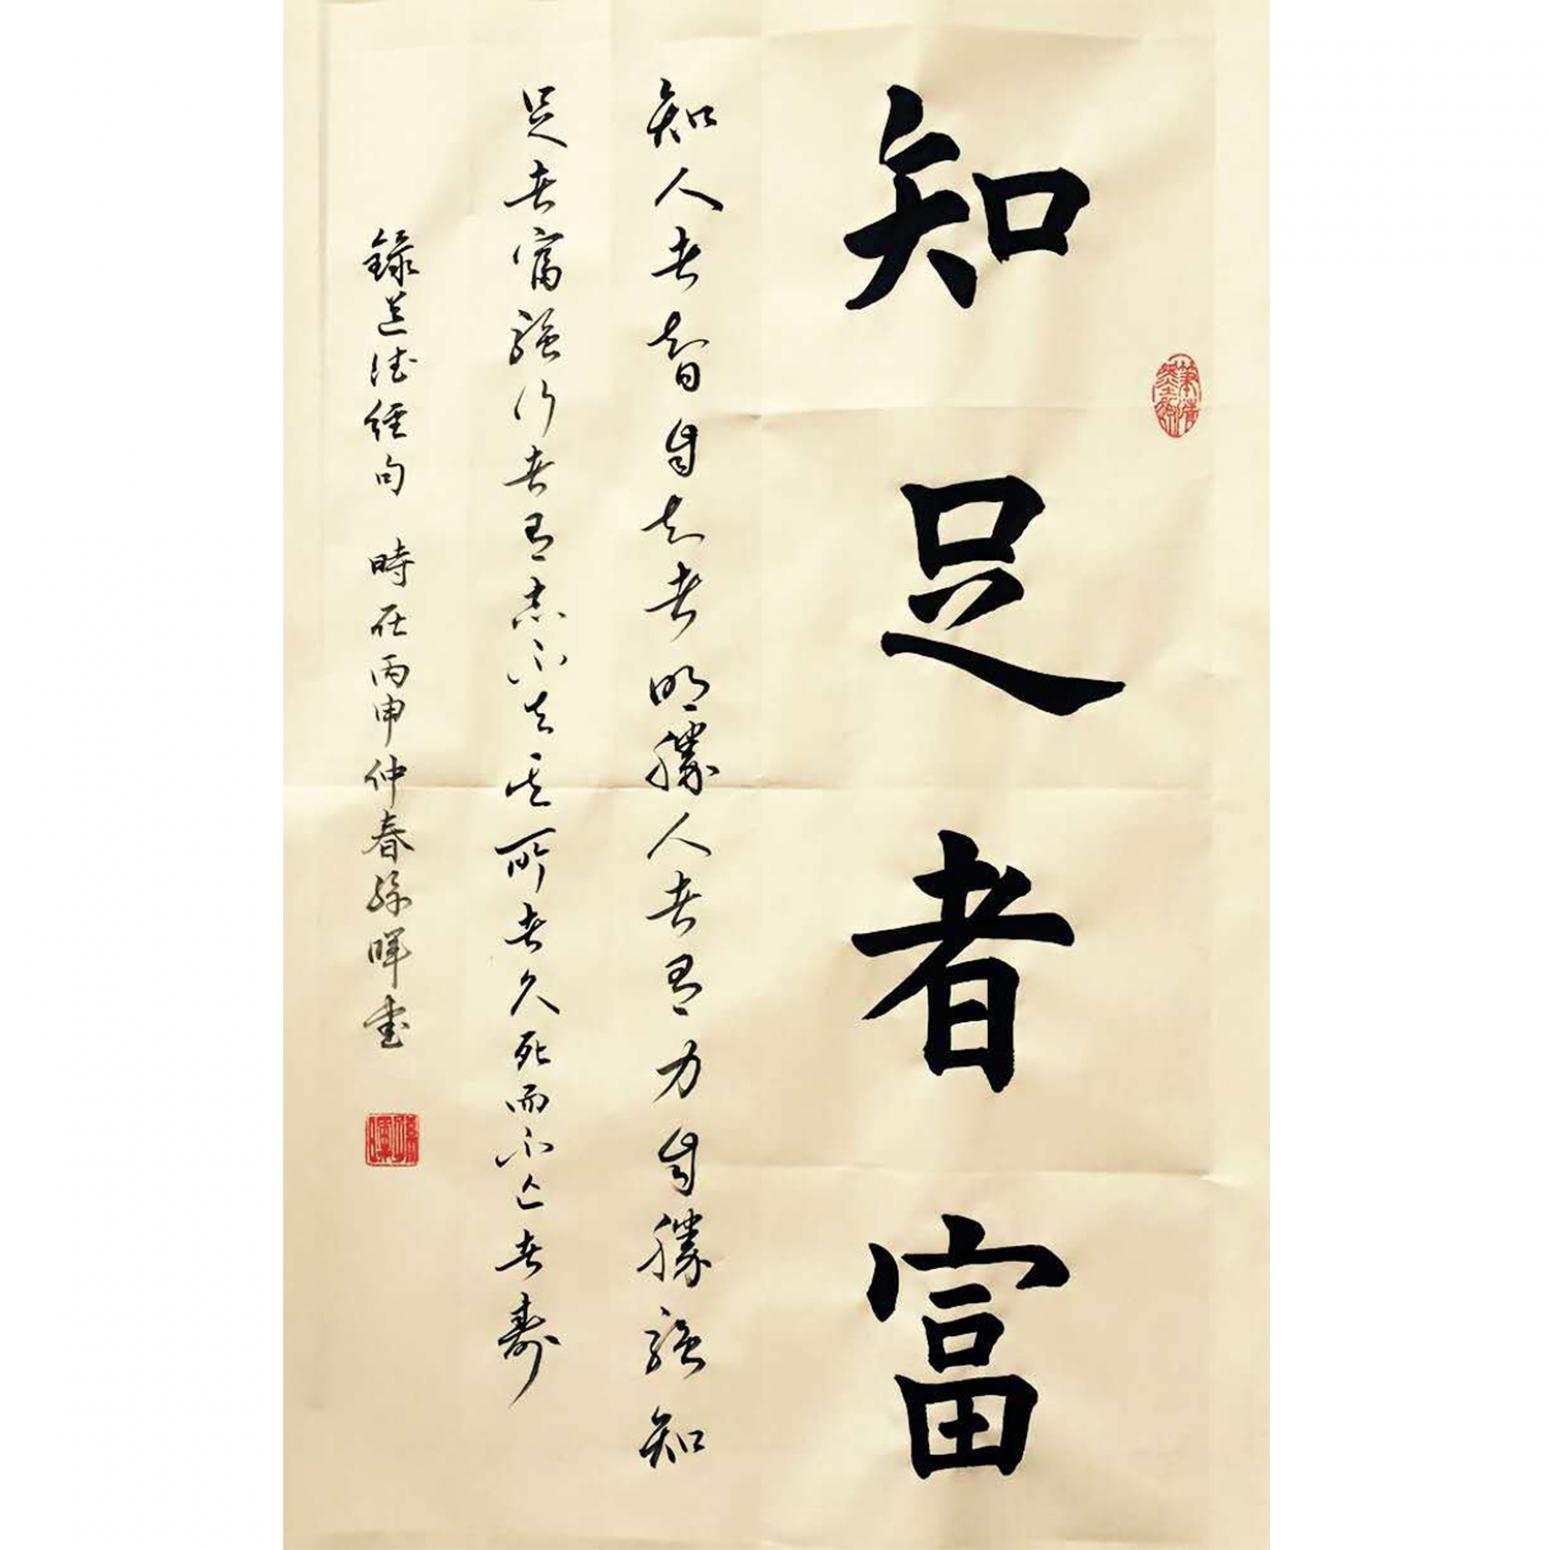 知足者富
知人者智自知者明勝人者有力自勝者強知
足者富強行者有志不失其所者久死而不亡者壽
錄道德經句 時在丙申仲春孫暉書